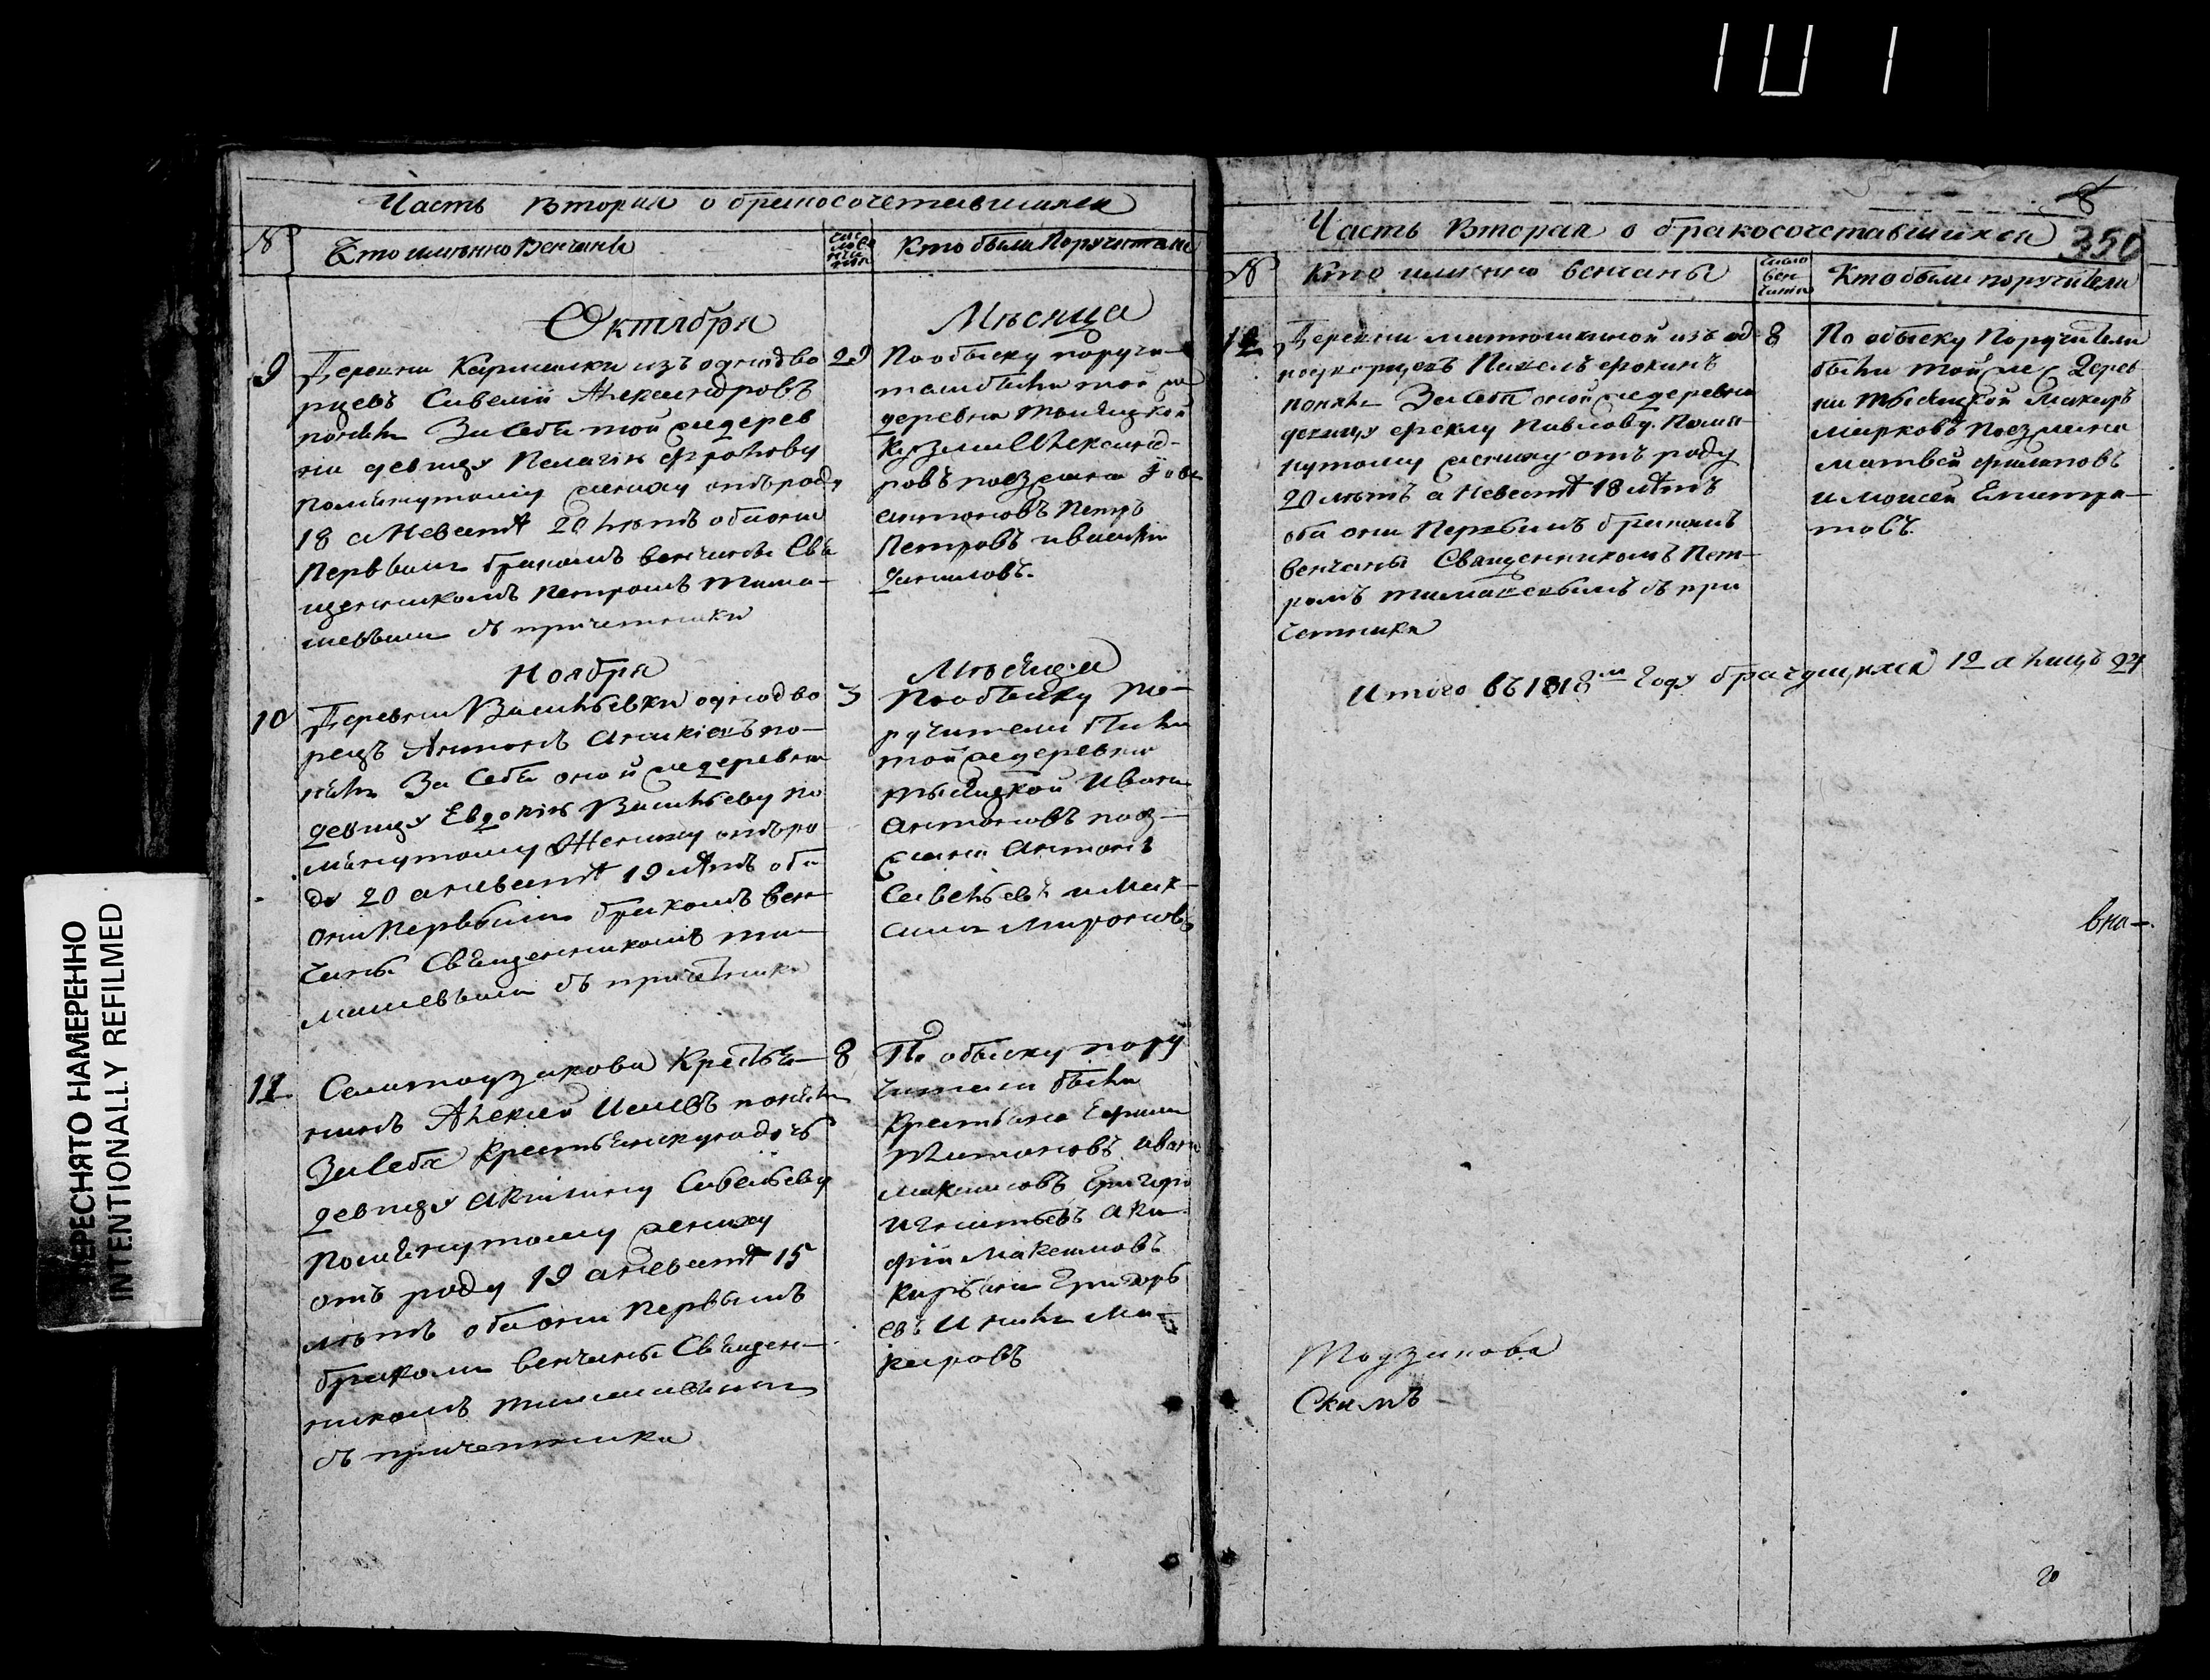 101
Часть Вторая о бракосочетавшихся
№
Кто имянно Венчаны
Кто были Поручители
Октября
Мѣсяца
9
Деревни Кармалки изъ однодво
рцевъ Савелiй Александровъ
понялъ За Себя той же дерев
ни девицу Пелагiю Фролову
помянутому жениху отъ роду
18 а Невестѣ 20 лѣтъ оба они
Первымъ бракомъ венчаны Свя
щенникомъ Петромъ Тима-
шевымъ съ причетники
29
По обыску поручи-
тели были той же
деревни
Козма Александ-
ровъ поезжана
антоновъ Петръ
Петровъ
Даниловъ.
Ноября
Мѣсяца
10
Деревни Васильевки однодво
рецъ Антонъ по-
нялъ За Себя оной же деревни
девицу Евдокiю Васильеву по
мянутому Жениху отъ ро
ду 20 а невестѣ 19 лѣтъ оба
они Первымъ бракомъ вен-
чаны Священникомъ ти-
машевымъ съ причетники
3
По обыску по-
ручители были
той же деревни
Иванъ
антоновъ поез-
жана Антонъ
Савельевъ и Мак-
симъ Мироновъ
11
Села Крестья-
нинъ Алексей Исаевъ понялъ
За Себя Крестьянскую дочь
девицу Акилину Савельеву
помянутому жениху
отъ роду 19 а невестѣ 15
лѣтъ оба они первымъ
бракомъ венчаны Священ-
никомъ тимашевымъ
съ причетники
8
По обыску пору
чители были
Крестьяна Ефимъ
иванъ
максимовъ Григорiй
Игнатьевъ
Максимовъ
Григорь
евъ Ма-
каровъ
8
350
Часть Вторая о бракосочетавшихся
№
Кто имянно венчаны
Число
вен
чанiя
Кто были поручители
12
Деревни матюшкиной изъ од
нодворцевъ Павелъ Фокинъ
понялъ За Себя оной же деревни
девицу Феклу Павлову. Помя-
нутому жениху отъ роду
20 лѣтъ а Невестѣ 18 лѣтъ
оба они Первымъ бракомъ
венчаны Священникомъ Пет-
ромъ тимашевымъ съ при
четники
8
По обыску Поручители
были той же Дерев
ни Макаръ
Марковъ Поезжана
Матвей Филиповъ
и Моисей
товъ.
Итого въ 1818м Году брачущихся 12 а лицъ 24
вно-
Скимъ
ПЕРЕСНЯТО НАМЕРЕННО
INTENTIONALLY REFILMED